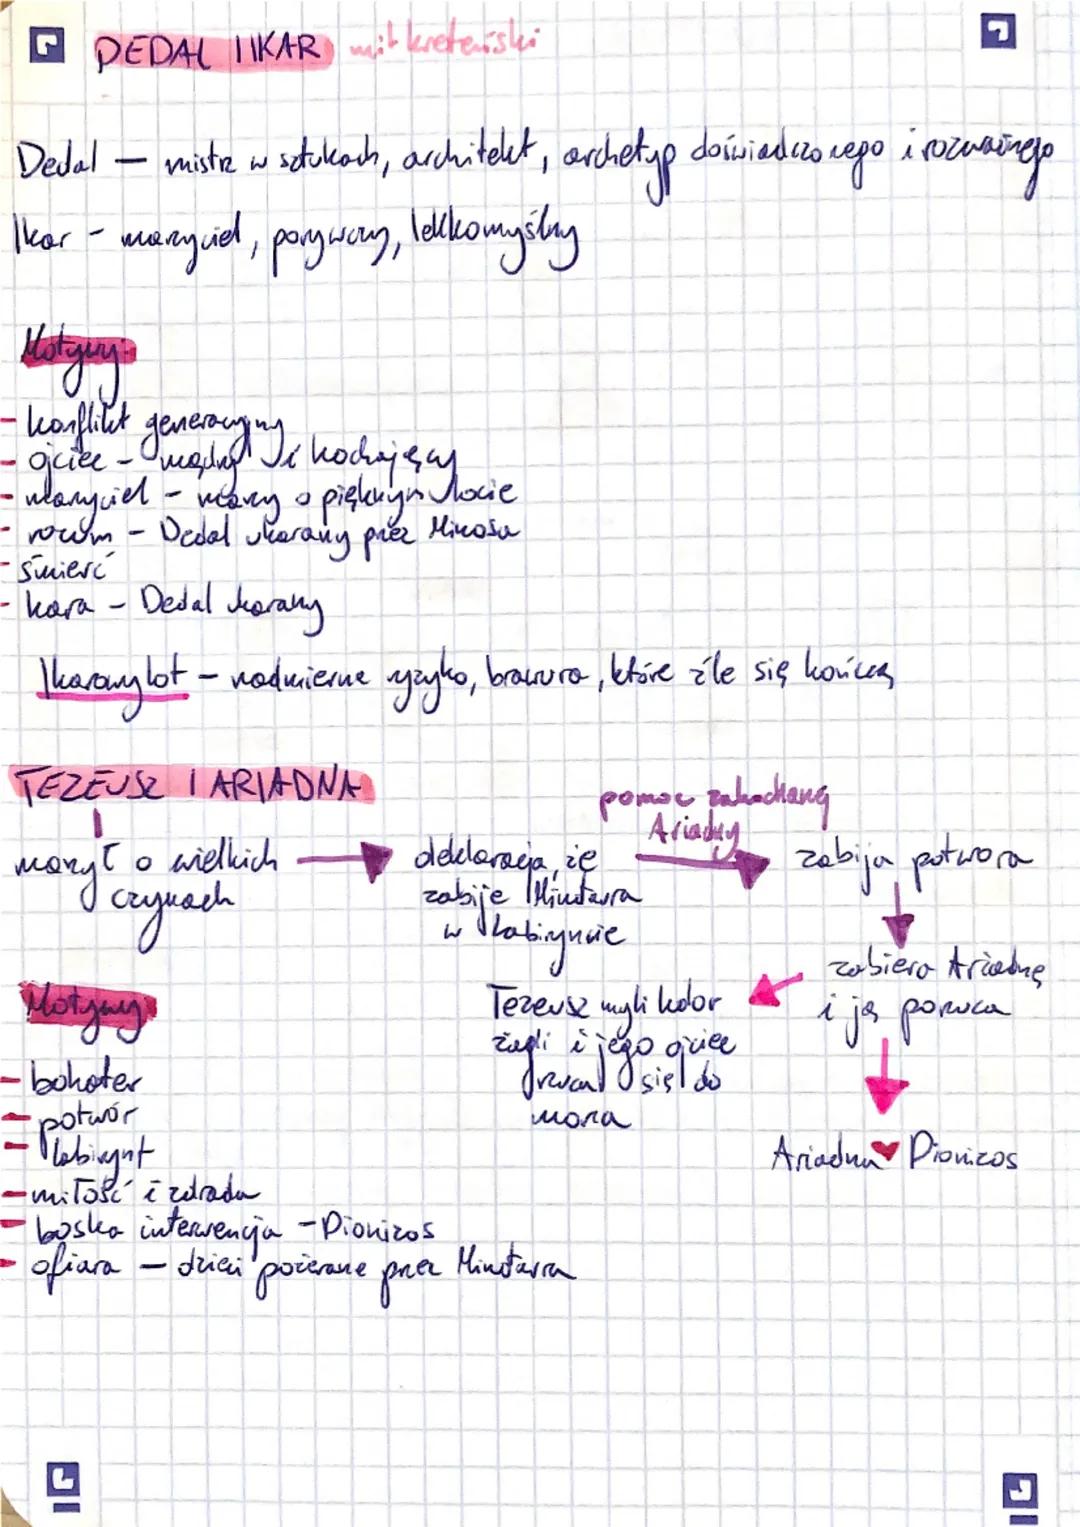 DEDAL I IKAR mit kreteński
Dedal – mistrz w sztukach, architekt, archetyp doświadczonego i rozważnego
Ikar – marzyciel, porywczy, lekkomyślny
Motywy:
- konflikt generacyjny
- ojciec – mądry i kochający
- marzyciel – marzy o pięknym locie
- rozum – Dedal ukarany przez Minosa
- śmierć
- kara – Dedal karany
Ikarowy lot – nadmierne ryzyko, brawura, które źle się kończą
TEZEUSZ I ARIADNA
marzył o wielkich czynach
deklaracja, że
zabije Minotaura
w labiryncie
pomoc zakochaną
Ariadny
zabija potwora
zabiera Ariadnę
i ją porzuca
Tezeusz myli kolor
żagli i jego ojciec
rzucał się do
morza
Ariadna ♥ Dionizos
Motywy
- bohater
- potwór
- labirynt
- miłość i zdrada
- boska interwencja – Dionizos
- ofiara – dzieci pożerane przez Minotaura